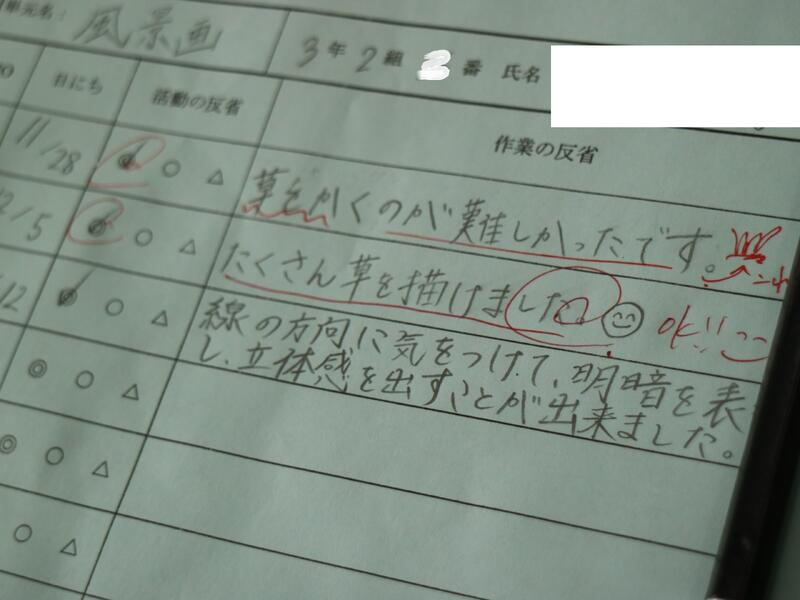 単元名： 風景画 3年 2組 番 氏名
日にち 活動の反省 作業の反省
11/28 ◎ ○ △ 草をかくのが難しかったです。
12/5 ◎ ○ △ たくさん草を描けました OK!!
12 ◎ ○ △ 線の方向に気をつけて、明暗を表
し、立体感を出すことが出来ました。
◎ ○ △
◎ ○ △
○ △